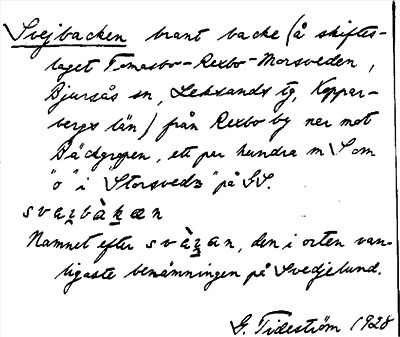 Svejbacken brant backe (å skiftes-
laget Tomasbo-Rexbo-Morsveden,
Bjursås sn, Leksands tg, Koppar-
bergs län) från Rexbo by ner mot
Bäckgropen, ett par hundra m S om
"o" i "Storsveds" på GS.
Namnet efter, den i orten van-
ligaste benämningen på Svedjelund.
G. Tideström 1928